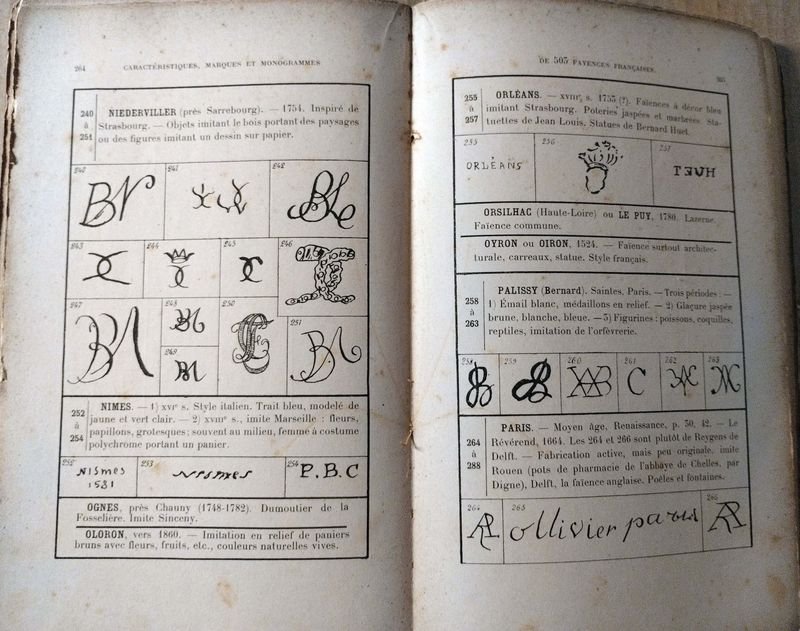 264 CARACTÉRISTIQUES, MARQUES ET MONOGRAMMES
240 à 251
NIEDERVILLER (près Sarrebourg). — 1754. Inspiré de
Strasbourg. — Objets imitant le bois portant des paysages
ou des figures imitant un dessin sur papier.
240 241 242
BN
243 244 245 246
247 248 250 251
249
252 à 254
NIMES. — 1) XVIe s. Style italien. Trait bleu, modelé de
jaune et vert clair. — 2) XVIIIe s., imite Marseille : fleurs,
papillons, grotesques; souvent au milieu, femme à costume
polychrome portant un panier.
252 253 254
Nismes
1581
Nismes
P.B.C
OGNES, près Chauny (1748-1782). Dumoutier de la
Fosselière. Imite Sinceny.
OLORON, vers 1860. — Imitation en relief de paniers
bruns avec fleurs, fruits, etc., couleurs naturelles vives.
DE 505 FAYENCES FRANÇAISES. 265
255 à 257
ORLÉANS. — XVIIIe s. 1755 (?). Faïences à décor bleu
imitant Strasbourg. Poteries jaspées et marbrées. Sta-
tuettes de Jean Louis. Statues de Bernard Huet.
255 256 257
ORLÉANS
HUET
ORSILHAC (Haute-Loire) ou LE PUY, 1780. Lazerne.
Faïence commune.
OYRON ou OIRON, 1524. — Faïence surtout architec-
turale, carreaux, statue. Style français.
258 à 263
PALISSY (Bernard). Saintes, Paris. — Trois périodes : —
1) Émail blanc, médaillons en relief. — 2) Glaçure jaspée
brune, blanche, bleue. — 3) Figurines : poissons, coquilles,
reptiles, imitation de l'orfèvrerie.
258 259 260 261 262 263
C
264 à 288
PARIS. — Moyen âge, Renaissance, p. 30, 42. — Le
Révérend, 1664. Les 264 et 266 sont plutôt de Reygens de
Delft. — Fabrication active, mais peu originale. imite
Rouen (pots de pharmacie de l'abbaye de Chelles, par
Digne), Delft, la faïence anglaise. Poêles et fontaines.
264 265 266
ollivier paris